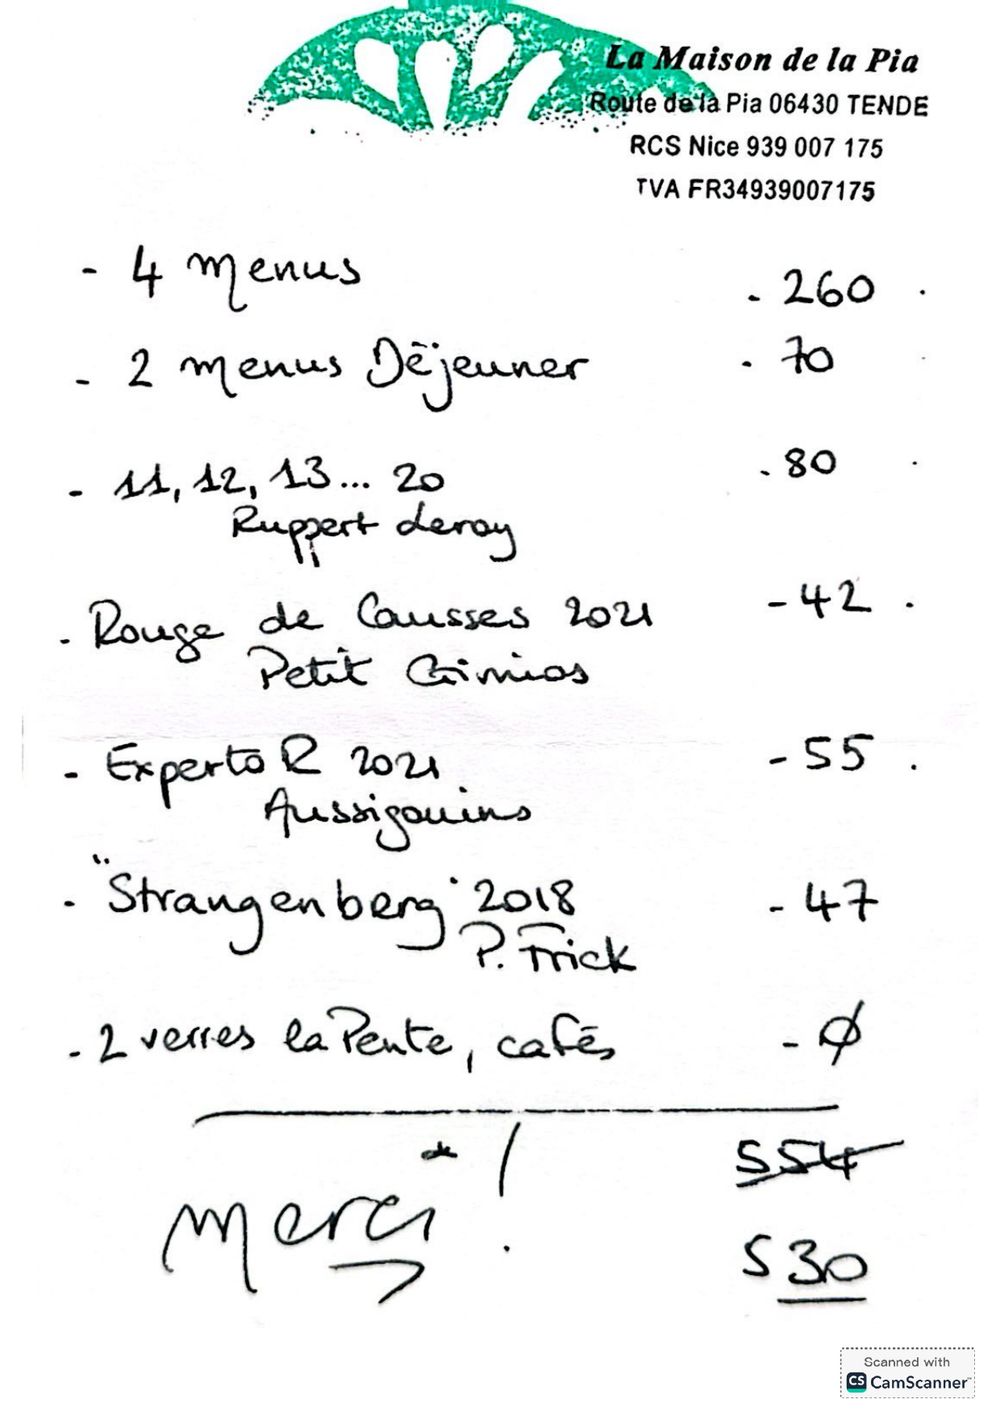 La Maison de la Pia
Route de la Pia 06430 TENDE
RCS Nice 939 007 175
TVA FR34939007175
- 4 menus - 260 .
- 2 menus Déjeuner - 70 .
- 11, 12, 13... 20 - 80 .
Ruppert Leroy
- Rouge de Causses 2021 - 42 .
Petit Gimios
- Experto R 2021 - 55 .
Aussigouins
- "Strangenberg" 2018 - 47
P. Frick
- 2 verres la Pente, cafés - Ø
554
merci !
530
Scanned with
CS CamScanner